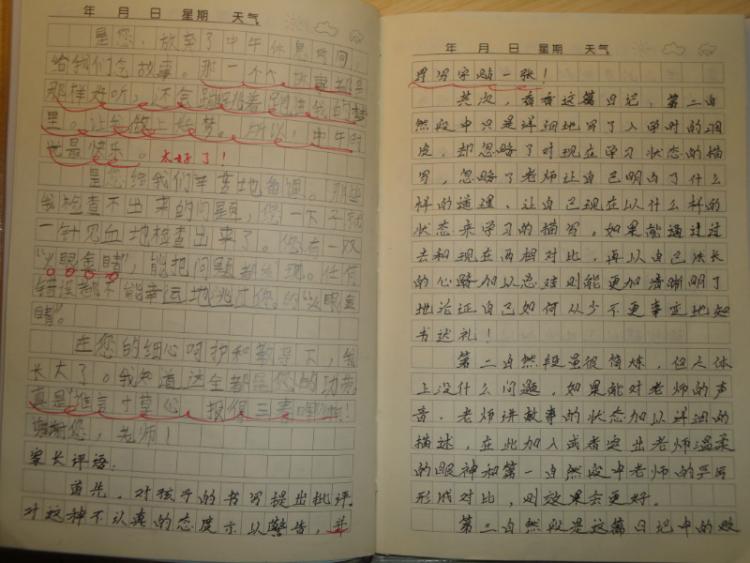 年 月 日 星期 天气
是您，放弃了中午休息时间，
给我们念故事。那一个个故事都是
那样好听，还会
里。让我做上好梦。所以，中午时
也最快乐。太好了！
是您给我们辛苦地备课。那些
我检查不出来的问题，您一下子就
一针见血地检查出来了。您有一双
“火眼金睛”，能把问题都出现。任何
错误都不能幸运地逃过您的“火眼金
睛”。
在您的细心呵护和教导下，我
长大了。我知道这全都是您的功劳
真是“谁言寸草心，报得三春晖”啊！
谢谢您，老师！
家长评语：
首先，对孩子的书写提出批评。
对这种不认真的态度示以警告，并
年 月 日 星期 天气
罚写字帖一张！
其次，看看这篇日记，第一自
然段中只是详细地写了入学时的调
皮，却忽略了对现在学习状态的描
写，忽略了老师让自己明白了什么
样的道理，让自己现在以什么样的
状态来学习的描写，如果能通过过
去和现在两相对比，再以自己成长
的心路加以总结则能更加清晰明了
地论证自己如何从少不更事变地知
书达礼！
第二自然段虽很简炼，但大体
上没什么问题，如果能对老师的声
音、老师讲故事的状态加以详细的
描述，在此加入或者突出老师温柔
的眼神和第一自然段中老师的严厉
形成对比，则效果会更好。
第三自然段是这篇日记中的败